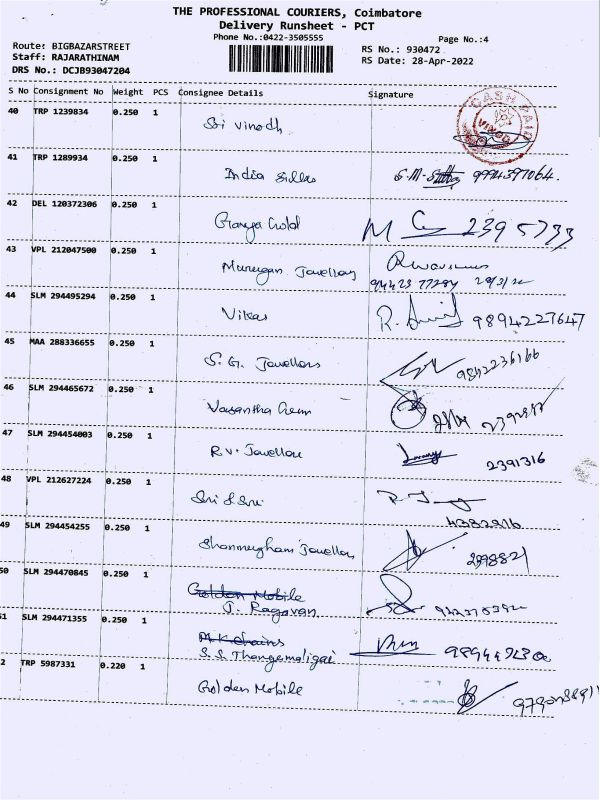 THE PROFESSIONAL COURIERS, Coimbatore
Delivery Runsheet - PCT
Phone No.:0422-3505555
Page No.:4
Route: BIGBAZARSTREET
Staff: RAJARATHINAM
DRS No.: DCJB93047204
RS No.: 930472
RS Date: 28-Apr-2022
S No Consignment No Weight PCS Consignee Details Signature
40 TRP 1239834 0.250 1
Sri Vinodh
CASH PAID
VINOD
41 TRP 1289934 0.250 1
India Silks S.M.
42 DEL 120372306 0.250 1
Gold 2395733
43 VPL 212047500 0.250 1
Murugan Jewellery
44 SLM 294495294 0.250 1
Vikas R. 9894227647
45 MAA 288336655 0.250 1
S.G. Jewellers 9842236166
46 SLM 294465672 0.250 1
Vasantha Gem
47 SLM 294454003 0.250 1
R.V. Jewellers 2391316
48 VPL 212627224 0.250 1
Sri & Sri
49 SLM 294454255 0.250 1
Shanmugham Jewellery
50 SLM 294470845 0.250 1
Golden Mobile
J. Ragavan
51 SLM 294471355 0.250 1
M.K chains
S.S. Thangamaligai
2 TRP 5987331 0.220 1
Golden Mobile